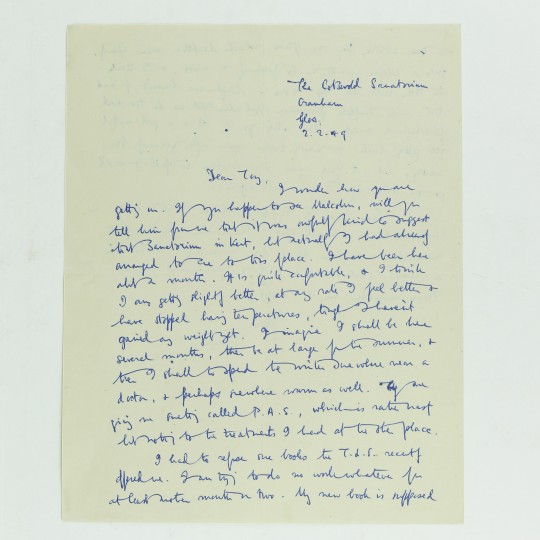 The Cotswold Sanatorium
Cranham
Glos.
2.2.49
Dear Tony,
I wonder how you are
getting on. If you happen to see Malcolm, will you
tell him from me that it was awfully kind to suggest
that Sanatorium in Kent, but actually I had already
arranged to come to this place. I have been here
about a month. It is quite comfortable, & I think
I am getting slightly better, at any rate I feel better &
have stopped having temperatures, though I haven't
gained any weight yet. I imagine I shall be here
several months, then be at large for the summer, &
then I shall to spend the winter somewhere near a
doctor, & perhaps somewhere warm as well. They are
giving me something called P.A.S., which is rather nasty
but nothing to the treatments I had at the other place.
I had to refuse some books the T.L.S. recently
offered me. I am trying to do no work whatever for
at least another month or two. My new book is supposed